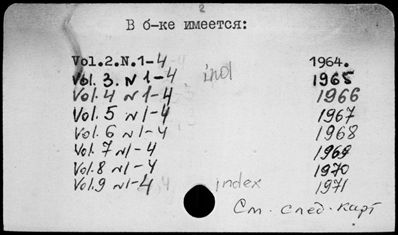 2
В б-ке имеется:
Vol.2.N.1-4 1964.
Vol. 3. N 1-4 ind 1965
Vol. 4 N 1-4 1966
Vol. 5 N 1-4 1967
Vol. 6 N 1-4 1968
Vol. 7 N 1-4 1969
Vol. 8 N 1-4 1970
Vol. 9 N 1-4 index 1971
См. след. карт